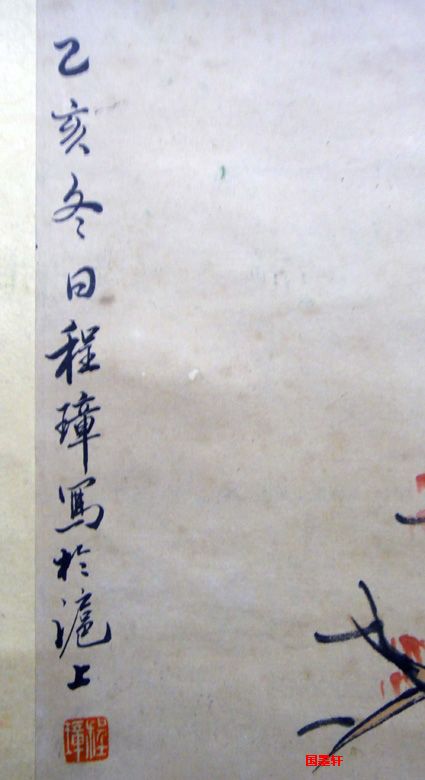 乙亥冬日程璋寫於滬上
程璋
国墨轩